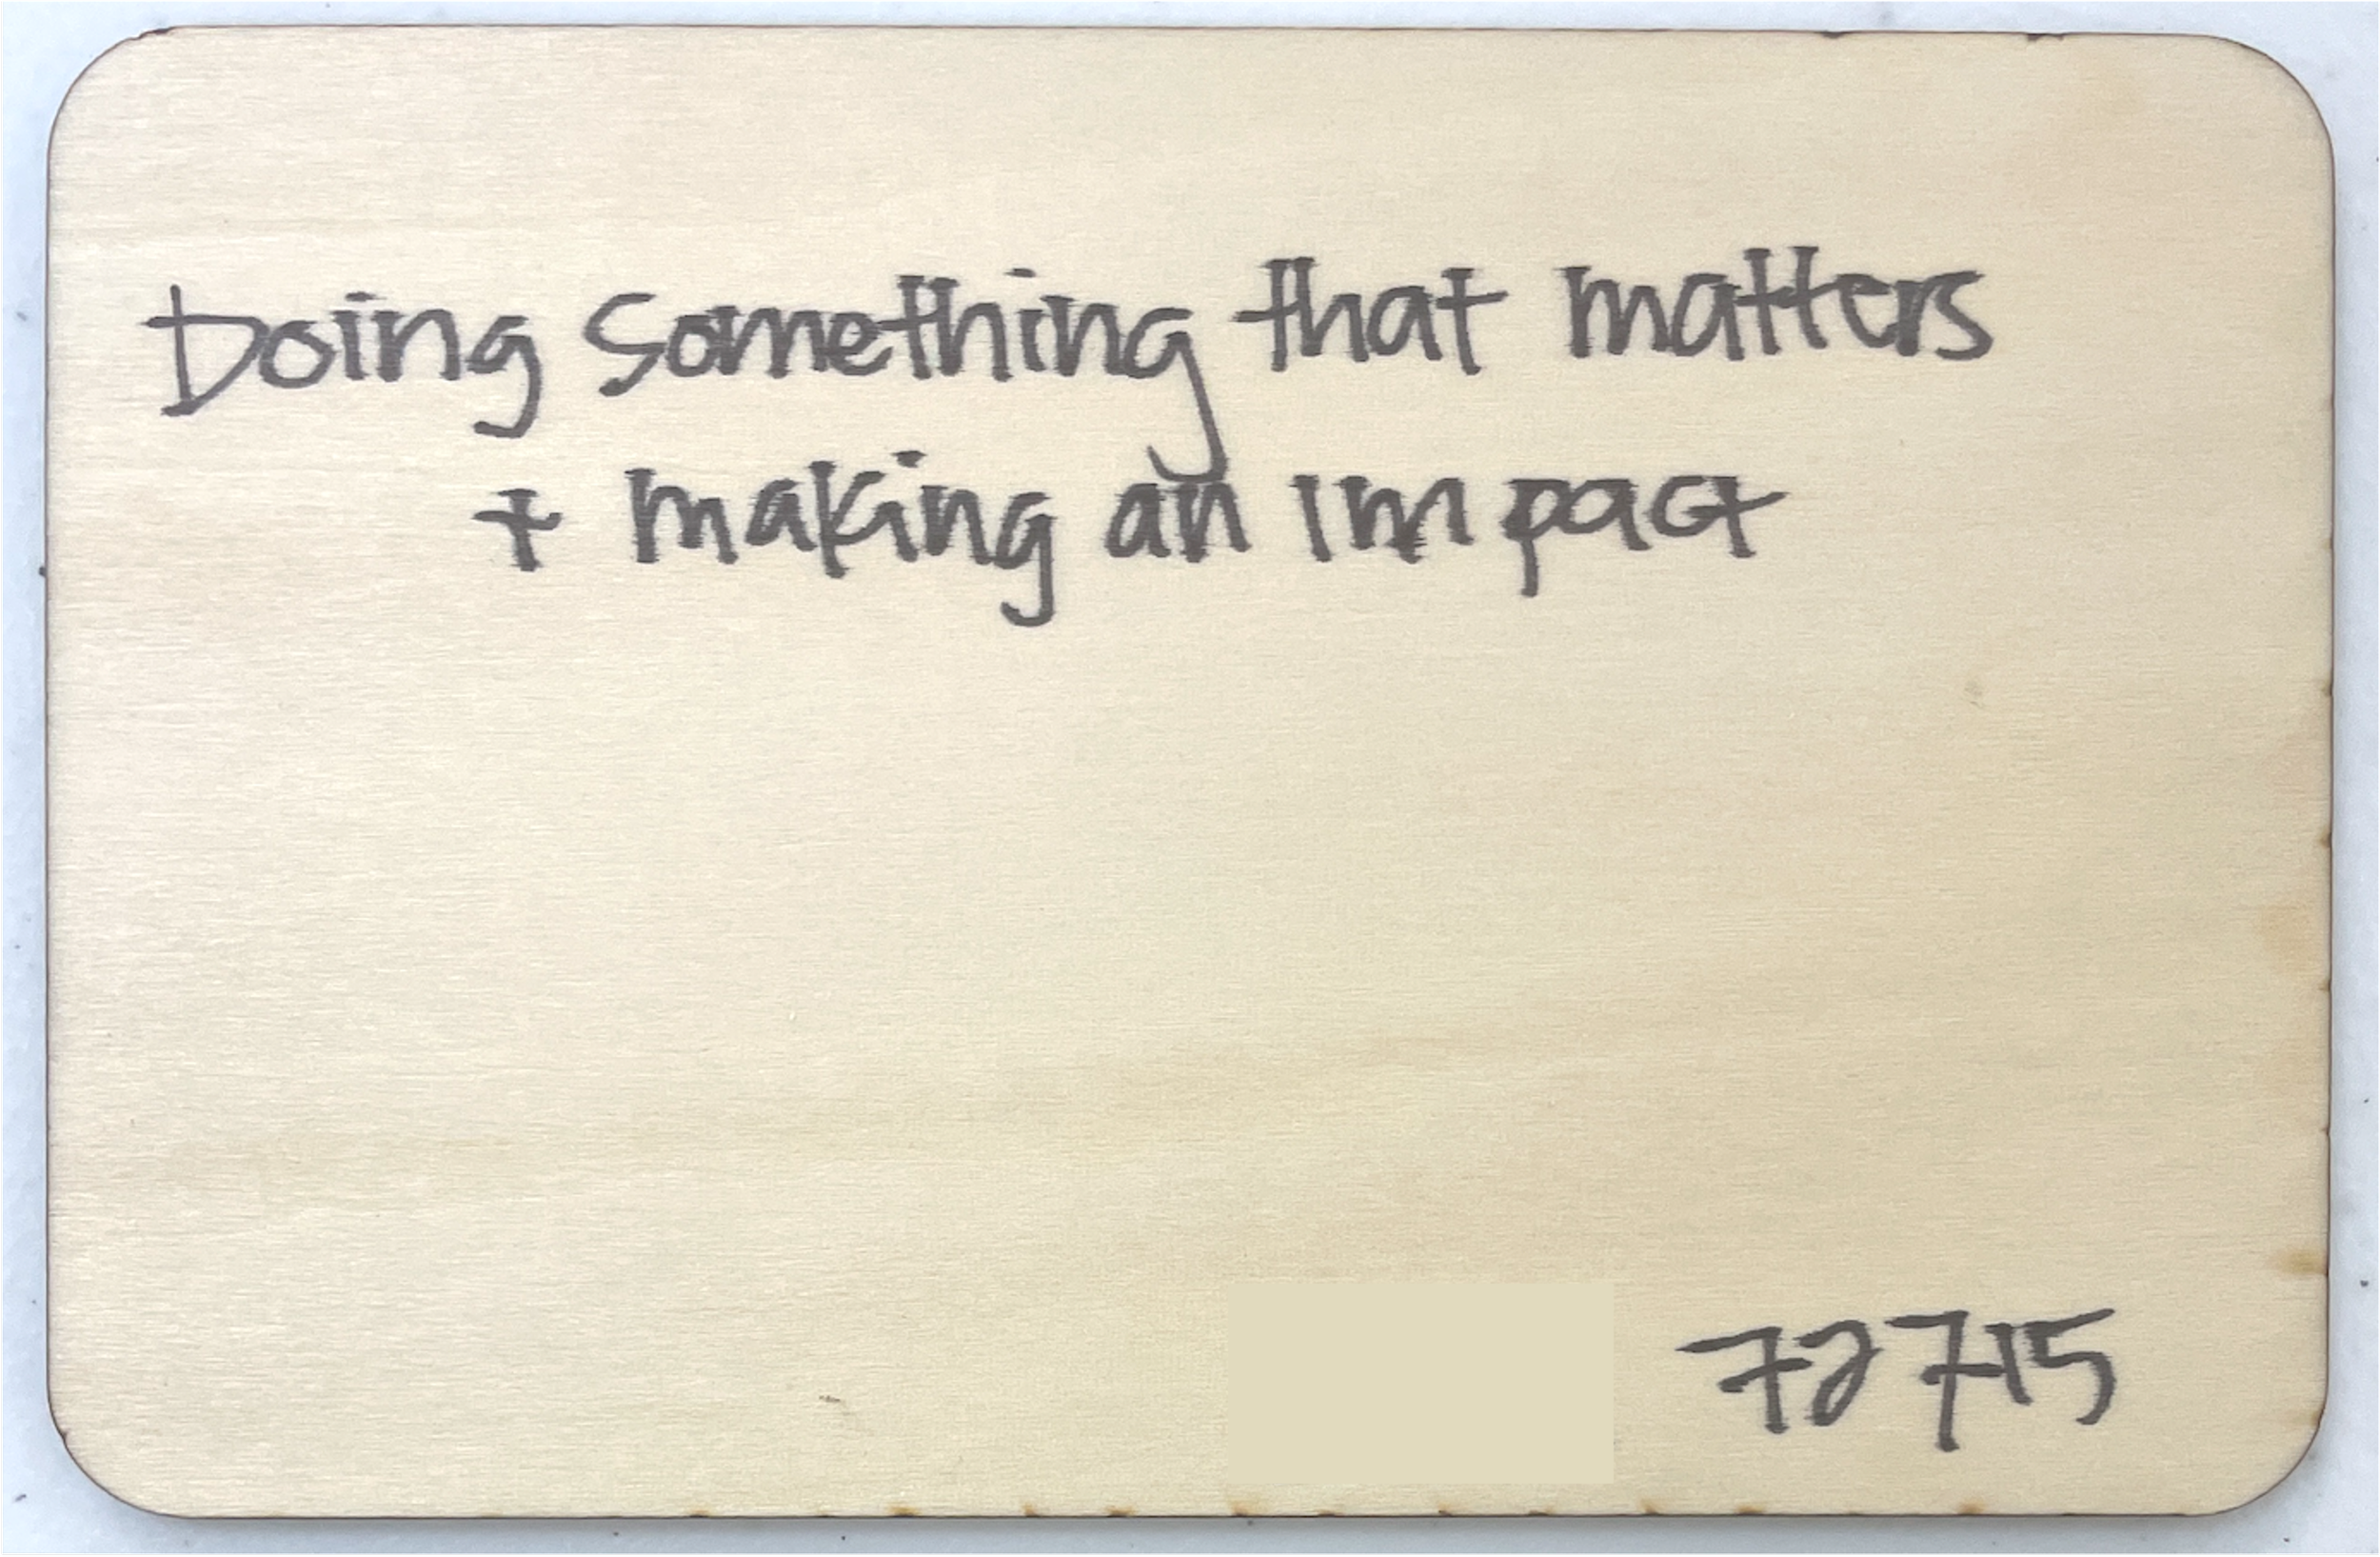 Doing something that matters
+ making an impact
72715